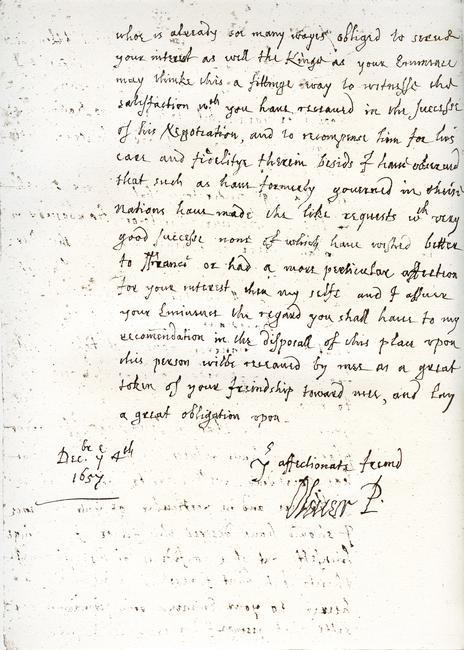 whoe is already soe many wayes obliged to serve
your interest as well the Kings as your Eminence
may thinke this a fittinge way to witnesse the
satisfaction wth you have receaved in the successe
of his Negotiation, and to recompense him for his
care and fidelitye therein besids I have observed
that such as have formerly governed in theise
nations have made the like requests wth very
good successe none of which have wished better
to ffrance or had a more perticular affection
for your interest then my selfe and I assure
your Eminence the regard you shall have to my
recomendation in the disposall of this place upon
this person wilbe receaved by mee as a great
token of your freindship toward mee, and lay
a great obligation upon
Decbr e y 4th
1657
yr affectionate freind
Oliver P.